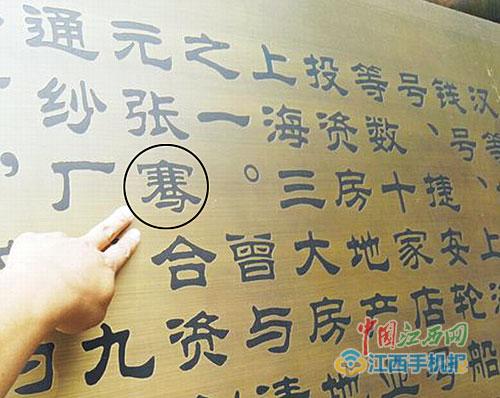 汉等
钱号、上
号、捷安轮船
等数十家店号
投资房地产业
上海三大房地
之一。曾与清
元张骞合资
通纱厂九
，为
中国江西网
江西手机报